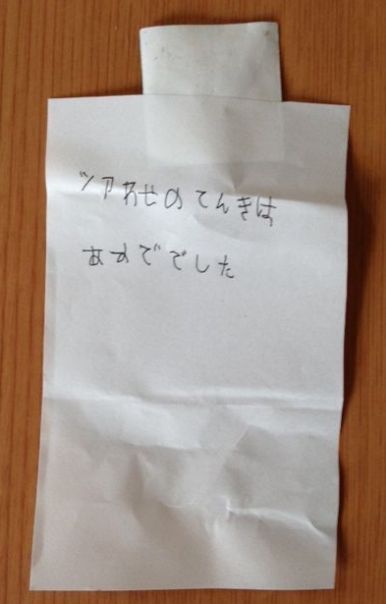 ツアわせのてんきは
あめででした